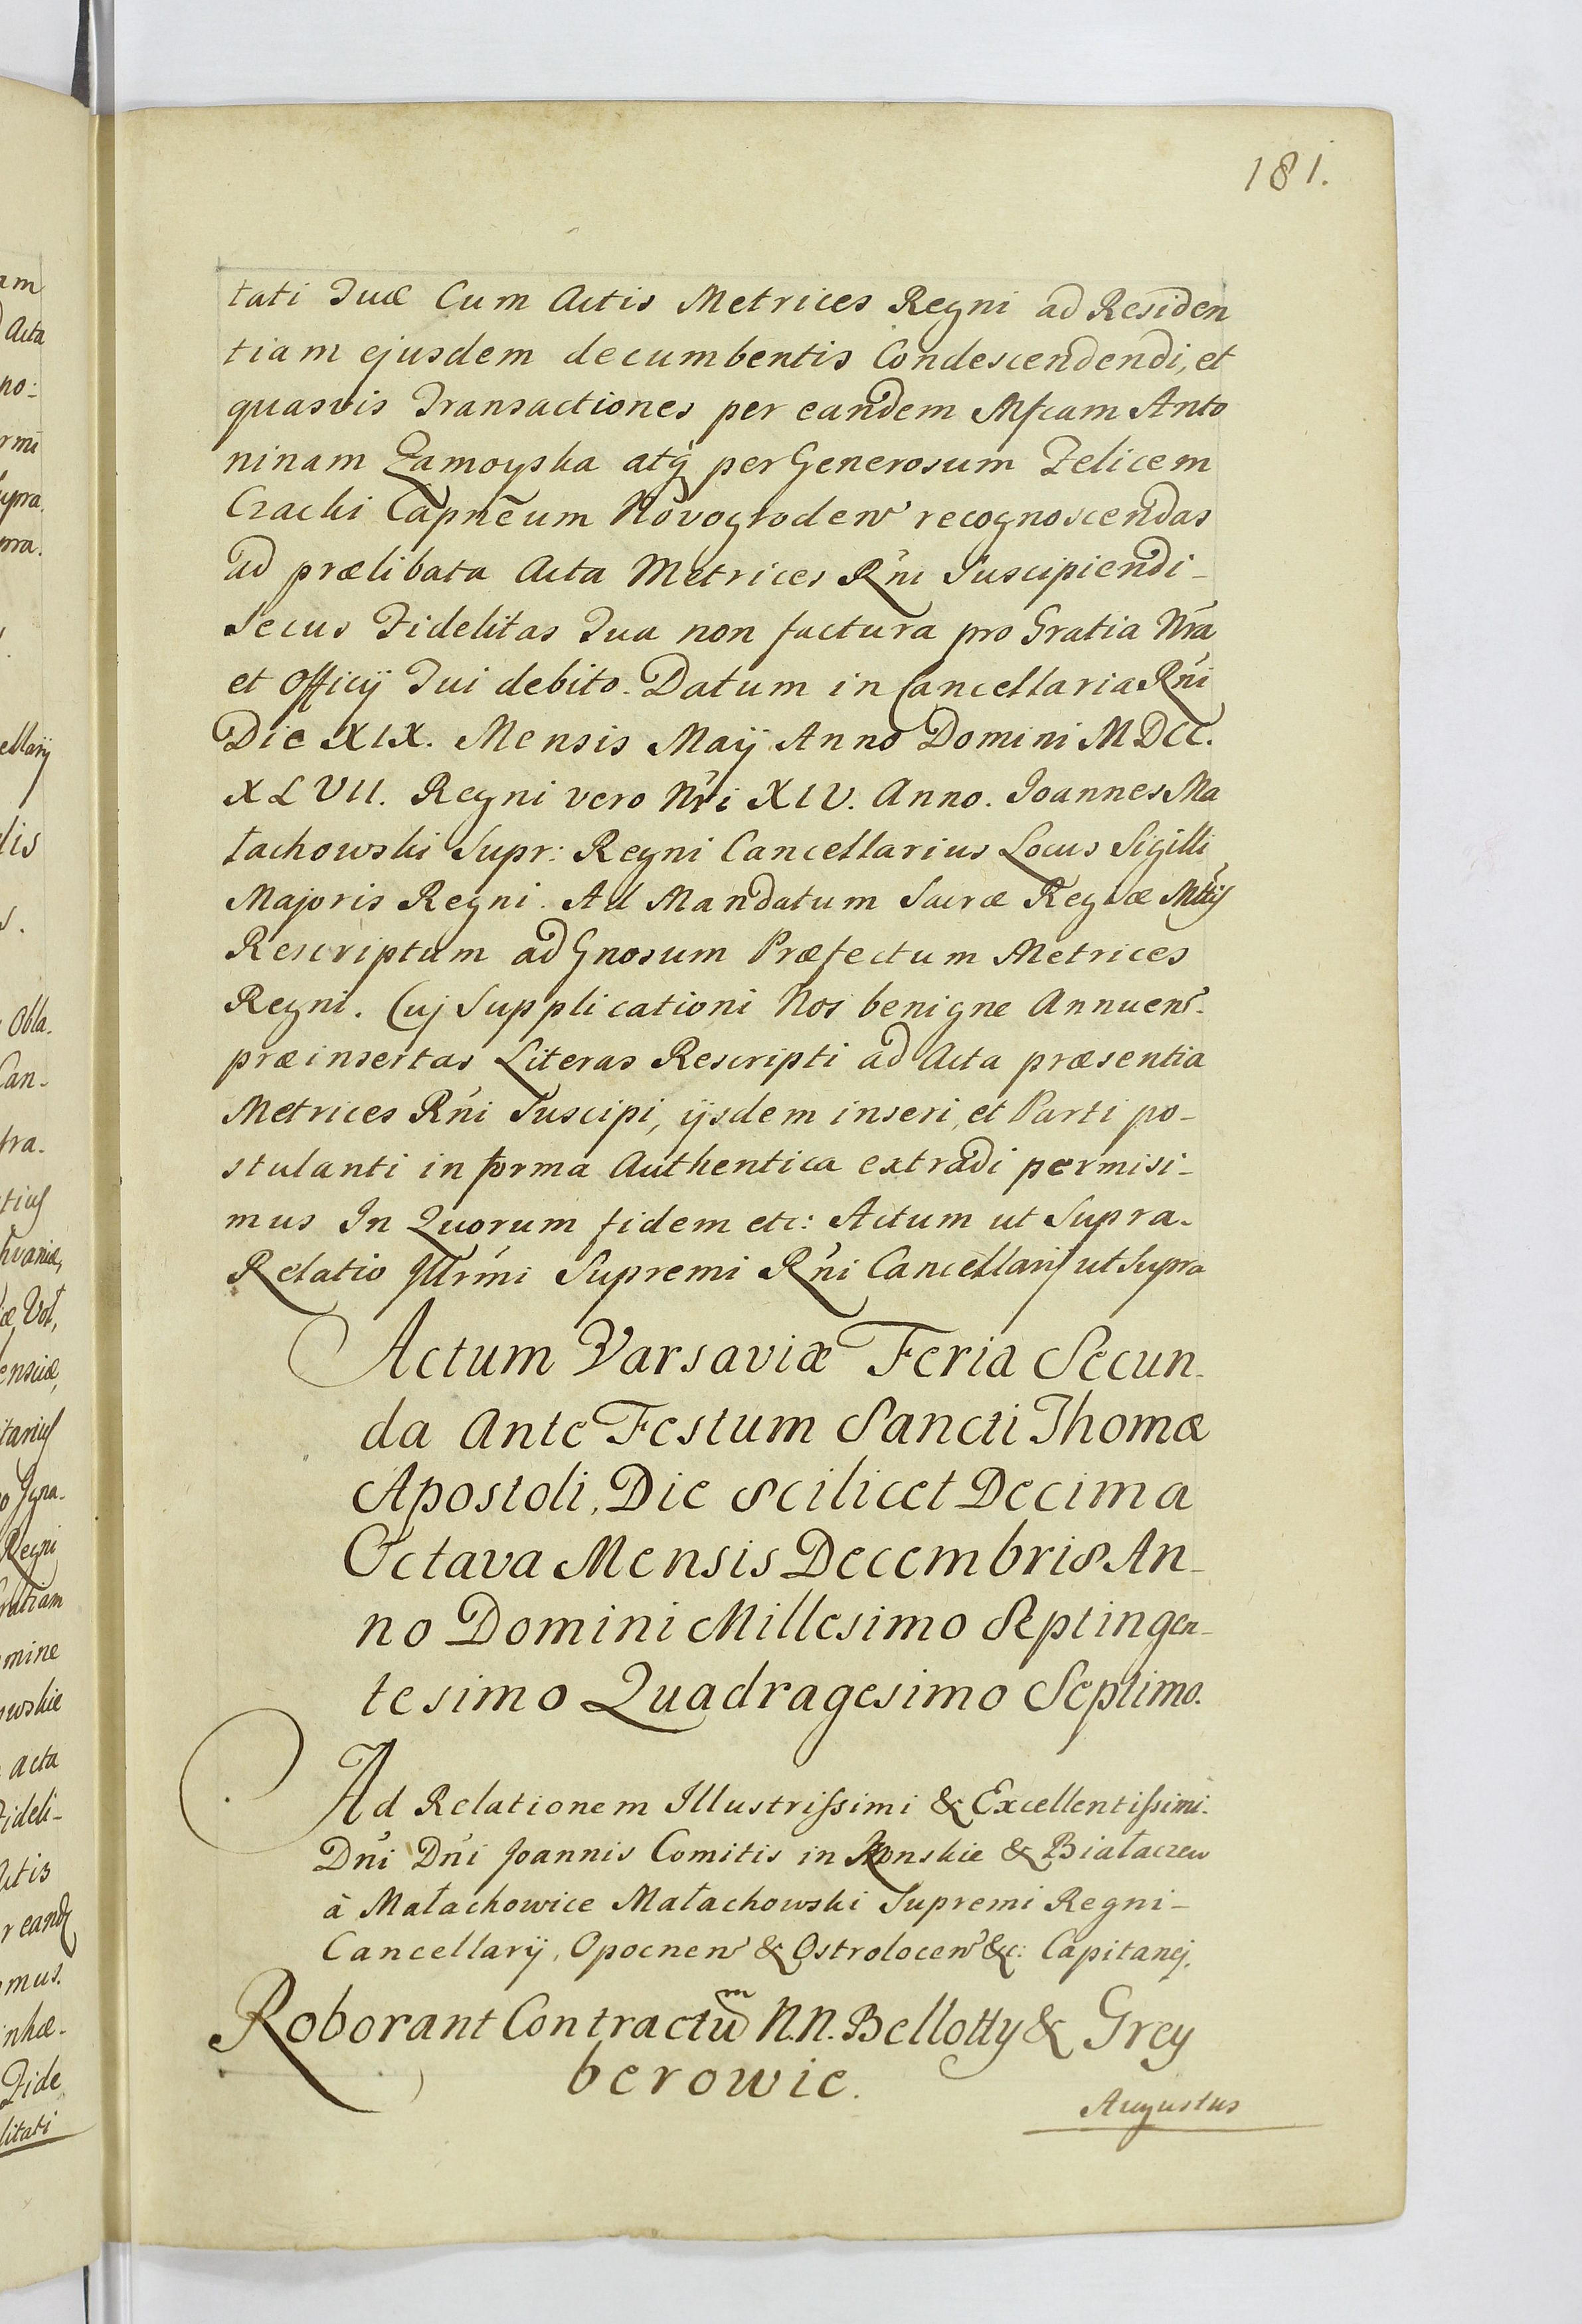 181.
tati Tuæ Cum Actis Metrices Regni ad Residen
tiam ejusdem decumbentis Condescendendi, et
quasvis Transactiones per eandem Mfcam Anto
ninam Zamoyska atq̃ per Generosum Felicem
Czacki Capnẽum Novogroden̄ recognoscendas
ad prælibata Acta Metrices Rñi Suscipiendi_
Secus Fidelitas Tua non factura pro Gratia Nrã
et Officij Sui debito. Datum in Cancellaria Rñi
Die XIX. Mensis Maij Anno Domini MDCC.
XLVII. Regni vero Nrĩ XIV. Anno. Joannes Ma
łachowski Supr: Regni Cancellarius Locus Sigilli
Majoris Regni. Ad Mandatum Sacræ Regiæ Mttĩs
Rescriptum ad Gnosum Præfectum Metrices
Regni. Cuj Supplicationi Nos benigne Annuen̄.
præinsertas Literas Rescripti ad Acta præsentia
Metrices Rñi Suscipi, ijsdem inseri, et Parti po_
stulanti in forma Authentica extradi permisi_
mus In Quorum fidem etc: Actum ut Supra.
Relatio Jllrm̃i Supremi Rñi Cancellarij ut Supra
Actum Varsaviæ Feria Secun_
da Ante Festum Sancti Thomæ
Apostoli, Die Scilicet Decima
Octava Mensis Decembris An_
no Domini Millesimo Septingen_
tesimo Quadragesimo Septimo.
Ad Relationem Illustrissimi & Excellentissimi.
Dñi Dñi Joannis Comitis in Konskie & Białaczew
à Małachowice Małachowski Supremi Regni_
Cancellarij, Opocnen̄ & Ostrolocen̄ &c: Capitanej.
Roborant Contractum N.N. Bellotty & Grey
berowie.
Augustus
am
Acta
no:
rmi
upra.
pra.
ellarij
lis
s.
Obla.
Can_
tra.
tius
hvaniæ,
æ Vol,
ensiæ,
Regni
ratiam
mine
owskie
acta
Fideli_
ctis
r eand
mus.
nhæ_
Fide
litati